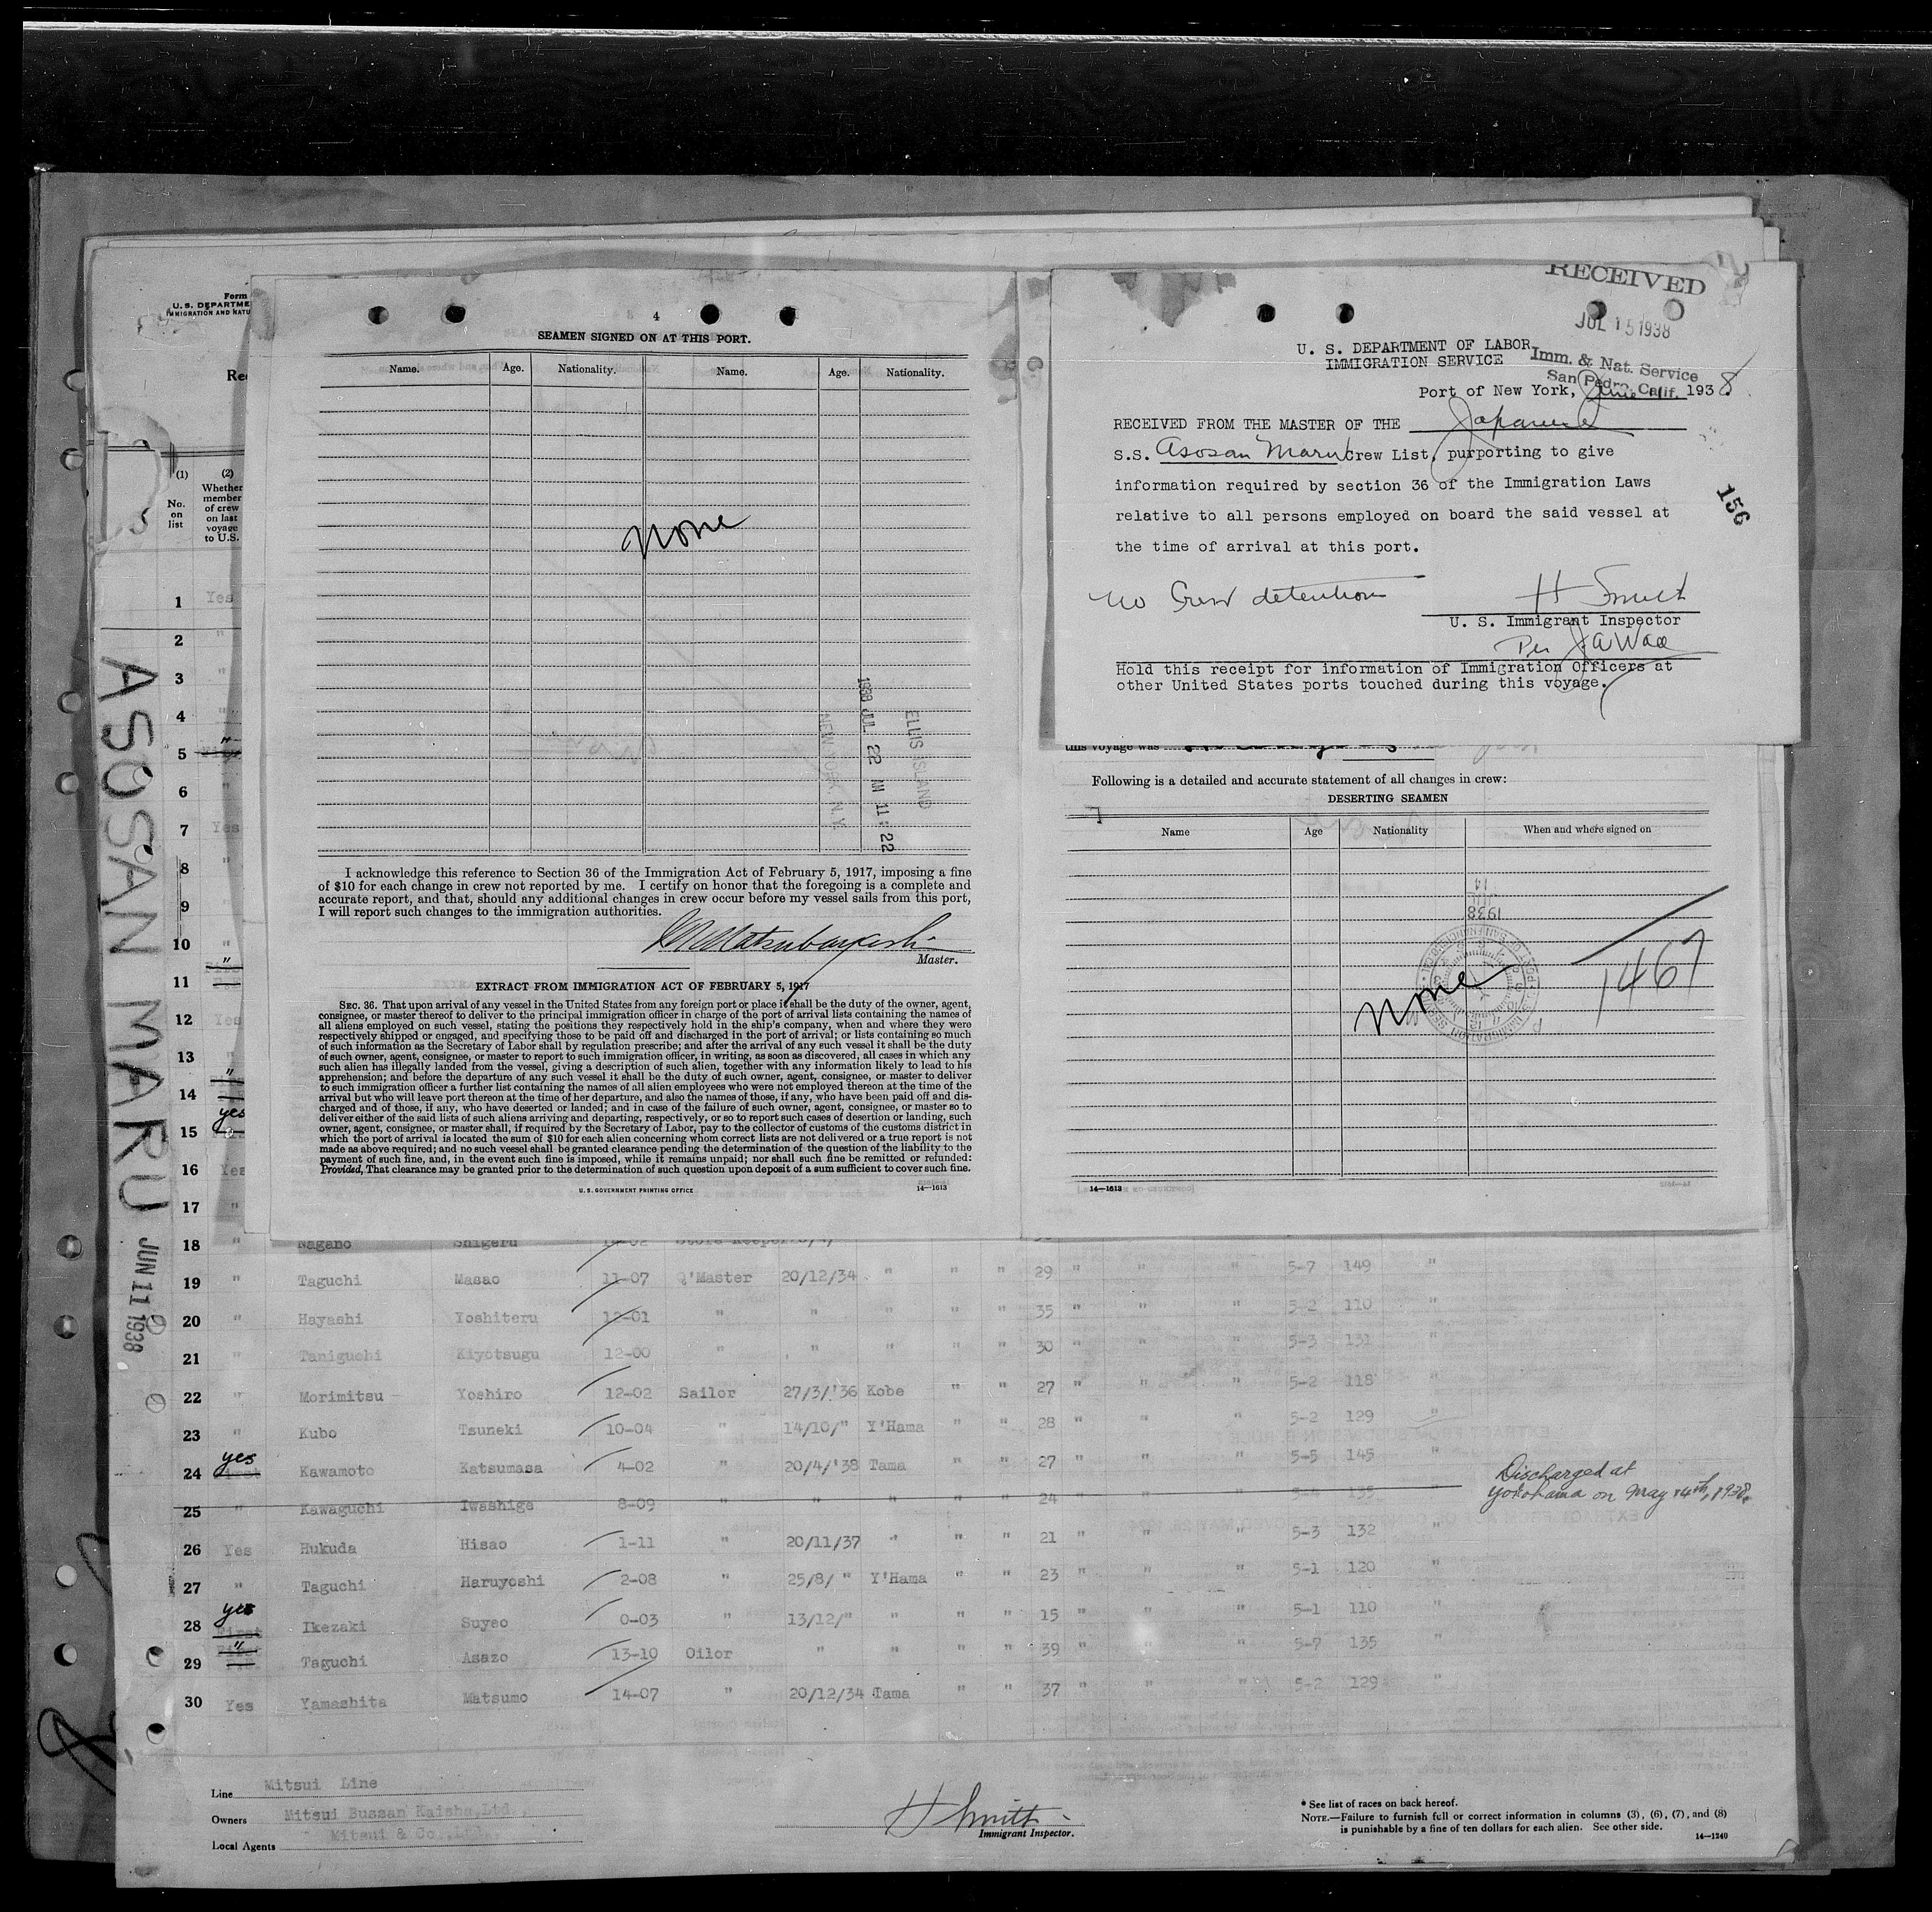 Form
U. S. DEPARTME
IMMIGRATION AND NATU
(1)
No.
on
list
(2)
Whether
member
of crew
on last
voyage
to U.S.
ASOSAN MARU
JUN 11 1938
4
SEAMEN SIGNED ON AT THIS PORT.
Name. Age. Nationality. Name. Age. Nationality.
None
ELLIS ISLAND
1938 JUL 22 AM 11:22
NEW YORK N.Y.
I acknowledge this reference to Section 36 of the Immigration Act of February 5, 1917, imposing a fine
of $10 for each change in crew not reported by me. I certify on honor that the foregoing is a complete and
accurate report, and that, should any additional changes in crew occur before my vessel sails from this port,
I will report such changes to the immigration authorities.
Master.
EXTRACT FROM IMMIGRATION ACT OF FEBRUARY 5, 1917
SEC. 36. That upon arrival of any vessel in the United States from any foreign port or place it shall be the duty of the owner, agent,
consignee, or master thereof to deliver to the principal immigration officer in charge of the port of arrival lists containing the names of
all aliens employed on such vessel, stating the positions they respectively hold in the ship's company, when and where they were
respectively shipped or engaged, and specifying those to be paid off and discharged in the port of arrival; or lists containing so much
of such information as the Secretary of Labor shall by regulation prescribe; and after the arrival of any such vessel it shall be the duty
of such owner, agent, consignee, or master to report to such immigration officer, in writing, as soon as discovered, all cases in which any
such alien has illegally landed from the vessel, giving a description of such alien, together with any information likely to lead to his
apprehension; and before the departure of any such vessel it shall be the duty of such owner, agent, consignee, or master to deliver
to such immigration officer a further list containing the names of all alien employees who were not employed thereon at the time of the
arrival but who will leave port thereon at the time of her departure, and also the names of those, if any, who have been paid off and dis-
charged and of those, if any, who have deserted or landed; and in case of the failure of such owner, agent, consignee, or master so to
deliver either of the said lists of such aliens arriving and departing, respectively, or so to report such cases of desertion or landing, such
owner, agent, consignee, or master shall, if required by the Secretary of Labor, pay to the collector of customs of the customs district in
which the port of arrival is located the sum of $10 for each alien concerning whom correct lists are not delivered or a true report is not
made as above required; and no such vessel shall be granted clearance pending the determination of the question of the liability to the
payment of such fine, and, in the event such fine is imposed, while it remains unpaid; nor shall such fine be remitted or refunded:
Provided, That clearance may be granted prior to the determination of such question upon deposit of a sum sufficient to cover such fine.
U. S. GOVERNMENT PRINTING OFFICE 14—1613
RECEIVED
JUL 15 1938
Imm. & Nat. Service
San Pedro, Calif.
U. S. DEPARTMENT OF LABOR
IMMIGRATION SERVICE
Port of New York, June 1938
RECEIVED FROM THE MASTER OF THE Japanese
S.S. Asosan Maru Crew List, purporting to give
information required by section 36 of the Immigration Laws
relative to all persons employed on board the said vessel at
the time of arrival at this port.
156
No Crew detention
H Smith
U. S. Immigrant Inspector
Per
Hold this receipt for information of Immigration Officers at
other United States ports touched during this voyage.
this voyage was
Following is a detailed and accurate statement of all changes in crew:
DESERTING SEAMEN
Name Age Nationality When and where signed on
14
JUL
1938
None
1467
14—1613
1 Yes
2 "
3 "
4 "
5 "
6 "
7 Yes
8 "
9 "
10 "
11 "
12 Yes
13 "
14 "
15 yes
16 Yes
17 "
18 " Nagano Shigeru
19 " Taguchi Masao 11-07 Q'Master 20/12/34 " " " 29 " " " 5-7 149 "
20 " Hayashi Yoshiteru 12-01 " " " " " 35 " " " 5-2 110 "
21 " Taniguchi Kiyotsugu 12-00 " " " " " 30 " " " 5-3 131 "
22 " Morimitsu Yoshiro 12-02 Sailor 27/3/'36 Kobe " " 27 " " " 5-2 118 "
23 " Kubo Tsuneki 10-04 " 14/10/" Y'Hama " " 28 " " " 5-2 129 "
24 yes First Kawamoto Katsumasa 4-02 " 20/4/'38 Tama " " 27 " " " 5-5 145 "
Discharged at
Yokohama on May 14th, 1938.
25 " Kawaguchi Iwashige 8-09 " " " " " 24 " " " 5-4 135 "
26 Yes Hukuda Hisao 1-11 " 20/11/37 " " " 21 " " " 5-3 132 "
27 " Taguchi Haruyoshi 2-08 " 25/8/ " Y'Hama " " 23 " " " 5-1 120 "
28 yes First Ikezaki Suyeo 0-03 " 13/12/" " " " 15 " " " 5-1 110 "
29 " Taguchi Asazo 13-10 Oilor " " " " 39 " " " 5-7 135 "
30 Yes Yamashita Matsumo 14-07 " 20/12/34 Tama " " 37 " " " 5-2 129 "
Line Mitsui Line
Owners Mitsui Bussan Kaisha,Ltd.
Local Agents Mitsui & Co.,Ltd.
H Smith
Immigrant Inspector.
* See list of races on back hereof.
NOTE.—Failure to furnish full or correct information in columns (3), (6), (7), and (8)
is punishable by a fine of ten dollars for each alien. See other side.
14—1240